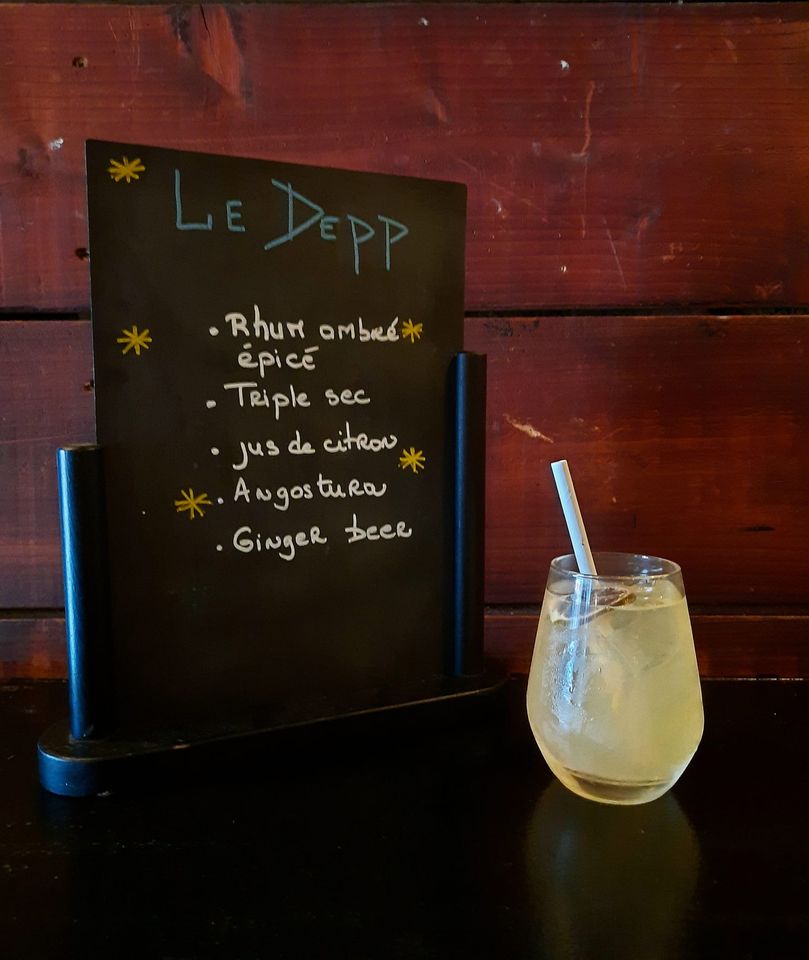 Le Depp
• Rhum ambré
épicé
• Triple sec
• jus de citron
• Angostura
• Ginger beer